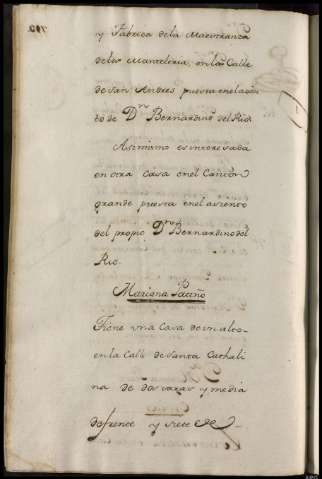 y Fabrica de la Maestranza
de la Manteleria, en la Calle
de San Andres puesta en el asien
to de Dn Bernardino del Rio.
Asimismo es interesada
en otra Casa en el Canton
grande puesta en el asiento
del propio Dn Bernardino del
Rio.
Mariana Patiño
Tiene una Casa de un alto
en la Calle de Santa Cathali
na de dos varas y media
de frente y siete de